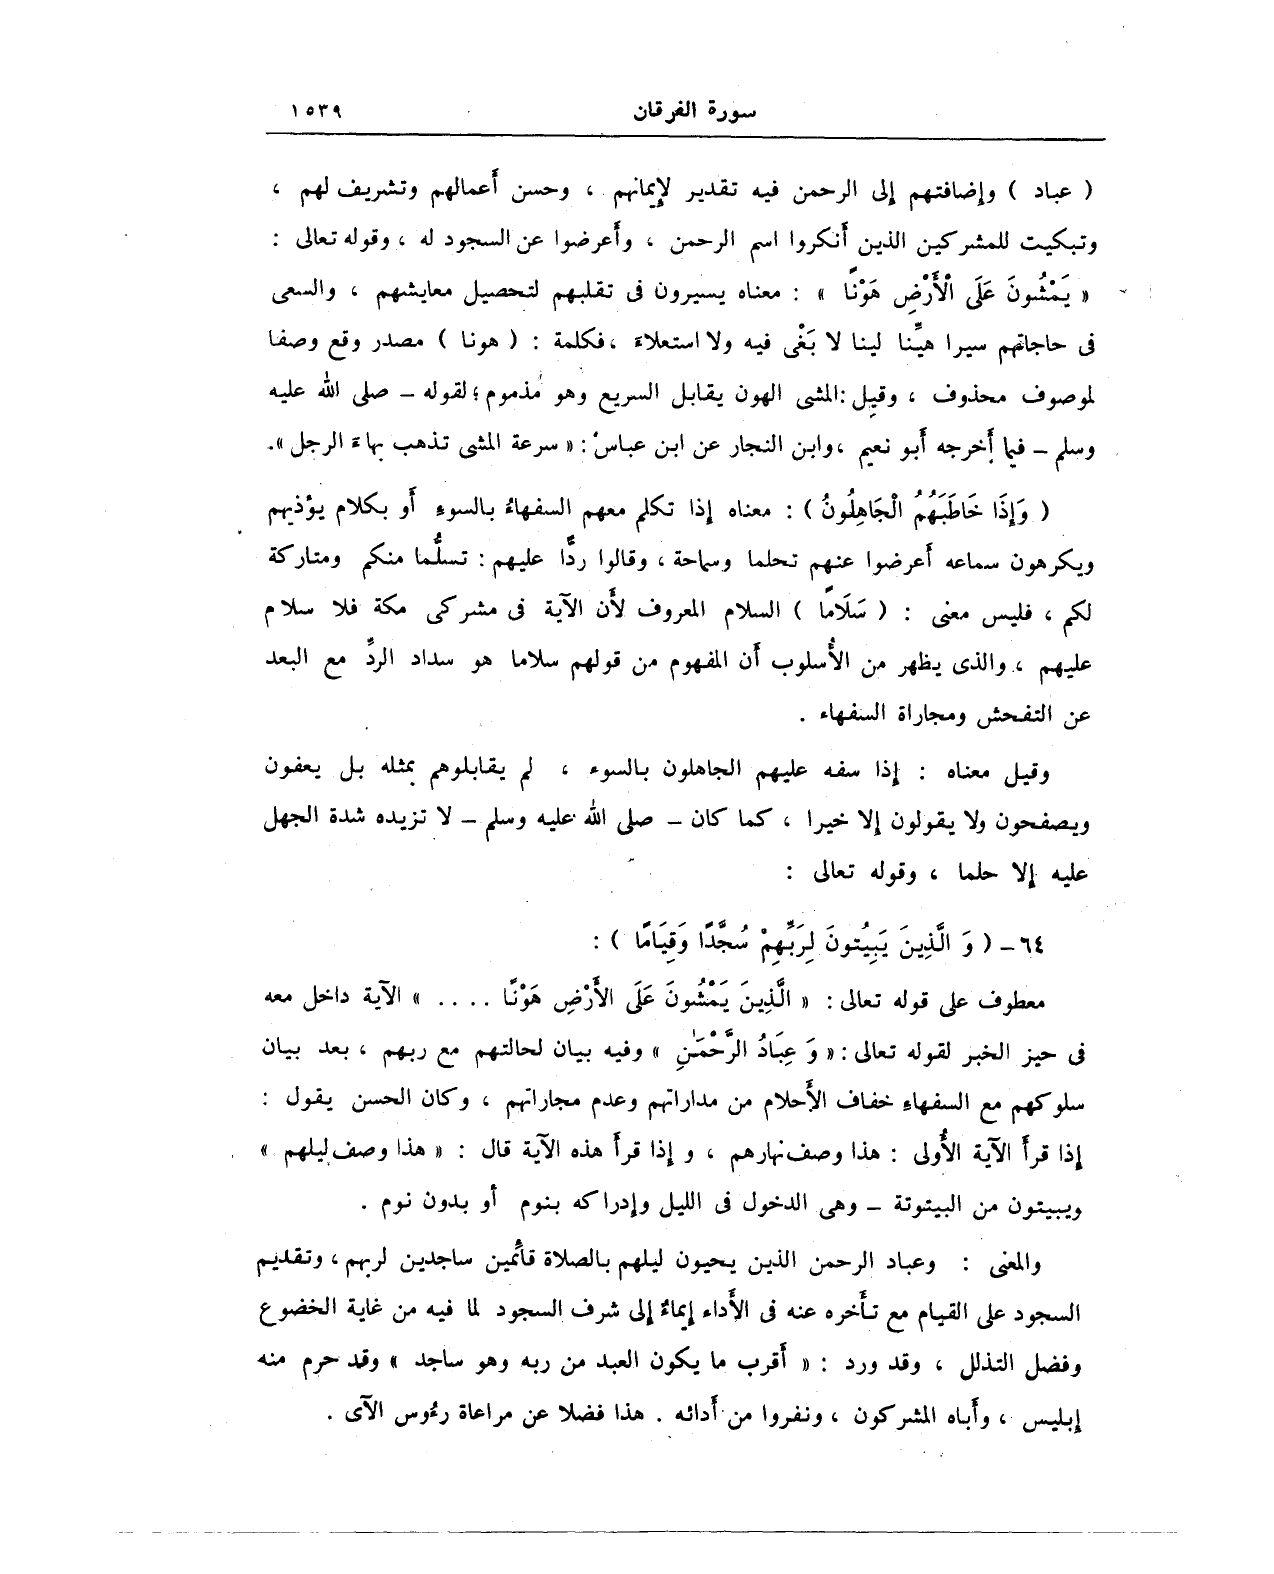 سورة الفرقان ١٥٣٩
( عباد ) وإضافتهم إلى الرحمن فيه تقدير لإيمانهم ، وحسن أعمالهم وتشريف لهم ،
وتبكيت للمشركين الذين أنكروا اسم الرحمن ، وأعرضوا عن السجود له ، وقوله تعالى :
« يَمْشُونَ عَلَى الْأَرْضِ هَوْنًا » : معناه يسيرون فى تقلبهم لتحصيل معايشهم ، والسعى
فى حاجاتهم سيرا هيِّنا لينا لا بَغْى فيه ولا استعلاءَ ، فكلمة : ( هونا ) مصدر وقع وصفا
لموصوف محذوف ، وقيل : المشى الهون يقابل السريع وهو مذموم ؛ لقوله ــ صلى الله عليه
وسلم ــ فيما أخرجه أبو نعيم ، وابن النجار عن ابن عباس : « سرعة المشى تذهب بهاءَ الرجل ».
( وَإِذَا خَاطَبَهُمُ الْجَاهِلُونُ ) : معناه إذا تكلم معهم السفهاءُ بالسوءِ أو بكلام يؤذيهم
ويكرهون سماعه أعرضوا عنهم تحلما وسماحة ، وقالوا ردًّا عليهم : تسلُّما منكم ومتاركة
لكم ، فليس معنى : ( سَلَامًا ) السلام المعروف لأن الآية فى مشركى مكة فلا سلام
عليهم ، والذى يظهر من الأُسلوب أن المفهوم من قولهم سلاما هو سداد الردِّ مع البعد
عن التفحش ومجاراة السفهاء .
وقيل معناه : إذا سفه عليهم الجاهلون بالسوء ، لم يقابلوهم بمثله بل يعفون
ويصفحون ولا يقولون إلا خيرا ، كما كان ــ صلى الله عليه وسلم ــ لا تزيده شدة الجهل
عليه إلا حلما ، وقوله تعالى :
٦٤ ــ ( وَ الَّذِينَ يَبِيُتونَ لِرَبِّهِمْ سُجَّدًا وَقِيَامًا ) :
معطوف على قوله تعالى : « الَّذِينَ يَمْشُونَ عَلَى الأَرْضِ هَوْنًا .... » الآية داخل معه
فى حيز الخبر لقوله تعالى : « وَ عِبَادُ الرَّحْمَٰنِ » وفيه بيان لحالتهم مع ربهم ، بعد بيان
سلوكهم مع السفهاءِ خفاف الأَحلام من مداراتهم وعدم مجاراتهم ، وكان الحسن يقول :
إذا قرأ الآية الأُولى : هذا وصف نهارهم ، و إذا قرأ هذه الآية قال : « هذا وصف ليلهم »
ويبيتون من البيتوتة ــ وهى الدخول فى الليل وإدراكه بنوم أو بدون نوم .
والمعنى : وعباد الرحمن الذين يحيون ليلهم بالصلاة قائمين ساجدين لربهم ، وتقديم
السجود على القيام مع تأخره عنه فى الأَداء إيماءٌ إلى شرف السجود لما فيه من غاية الخضوع
وفضل التذلل ، وقد ورد : « أقرب ما يكون العبد من ربه وهو ساجد » وقد حرم منه
إبليس ، وأباه المشركون ، ونفروا من أدائه . هذا فضلا عن مراعاة رءُوس الآى .